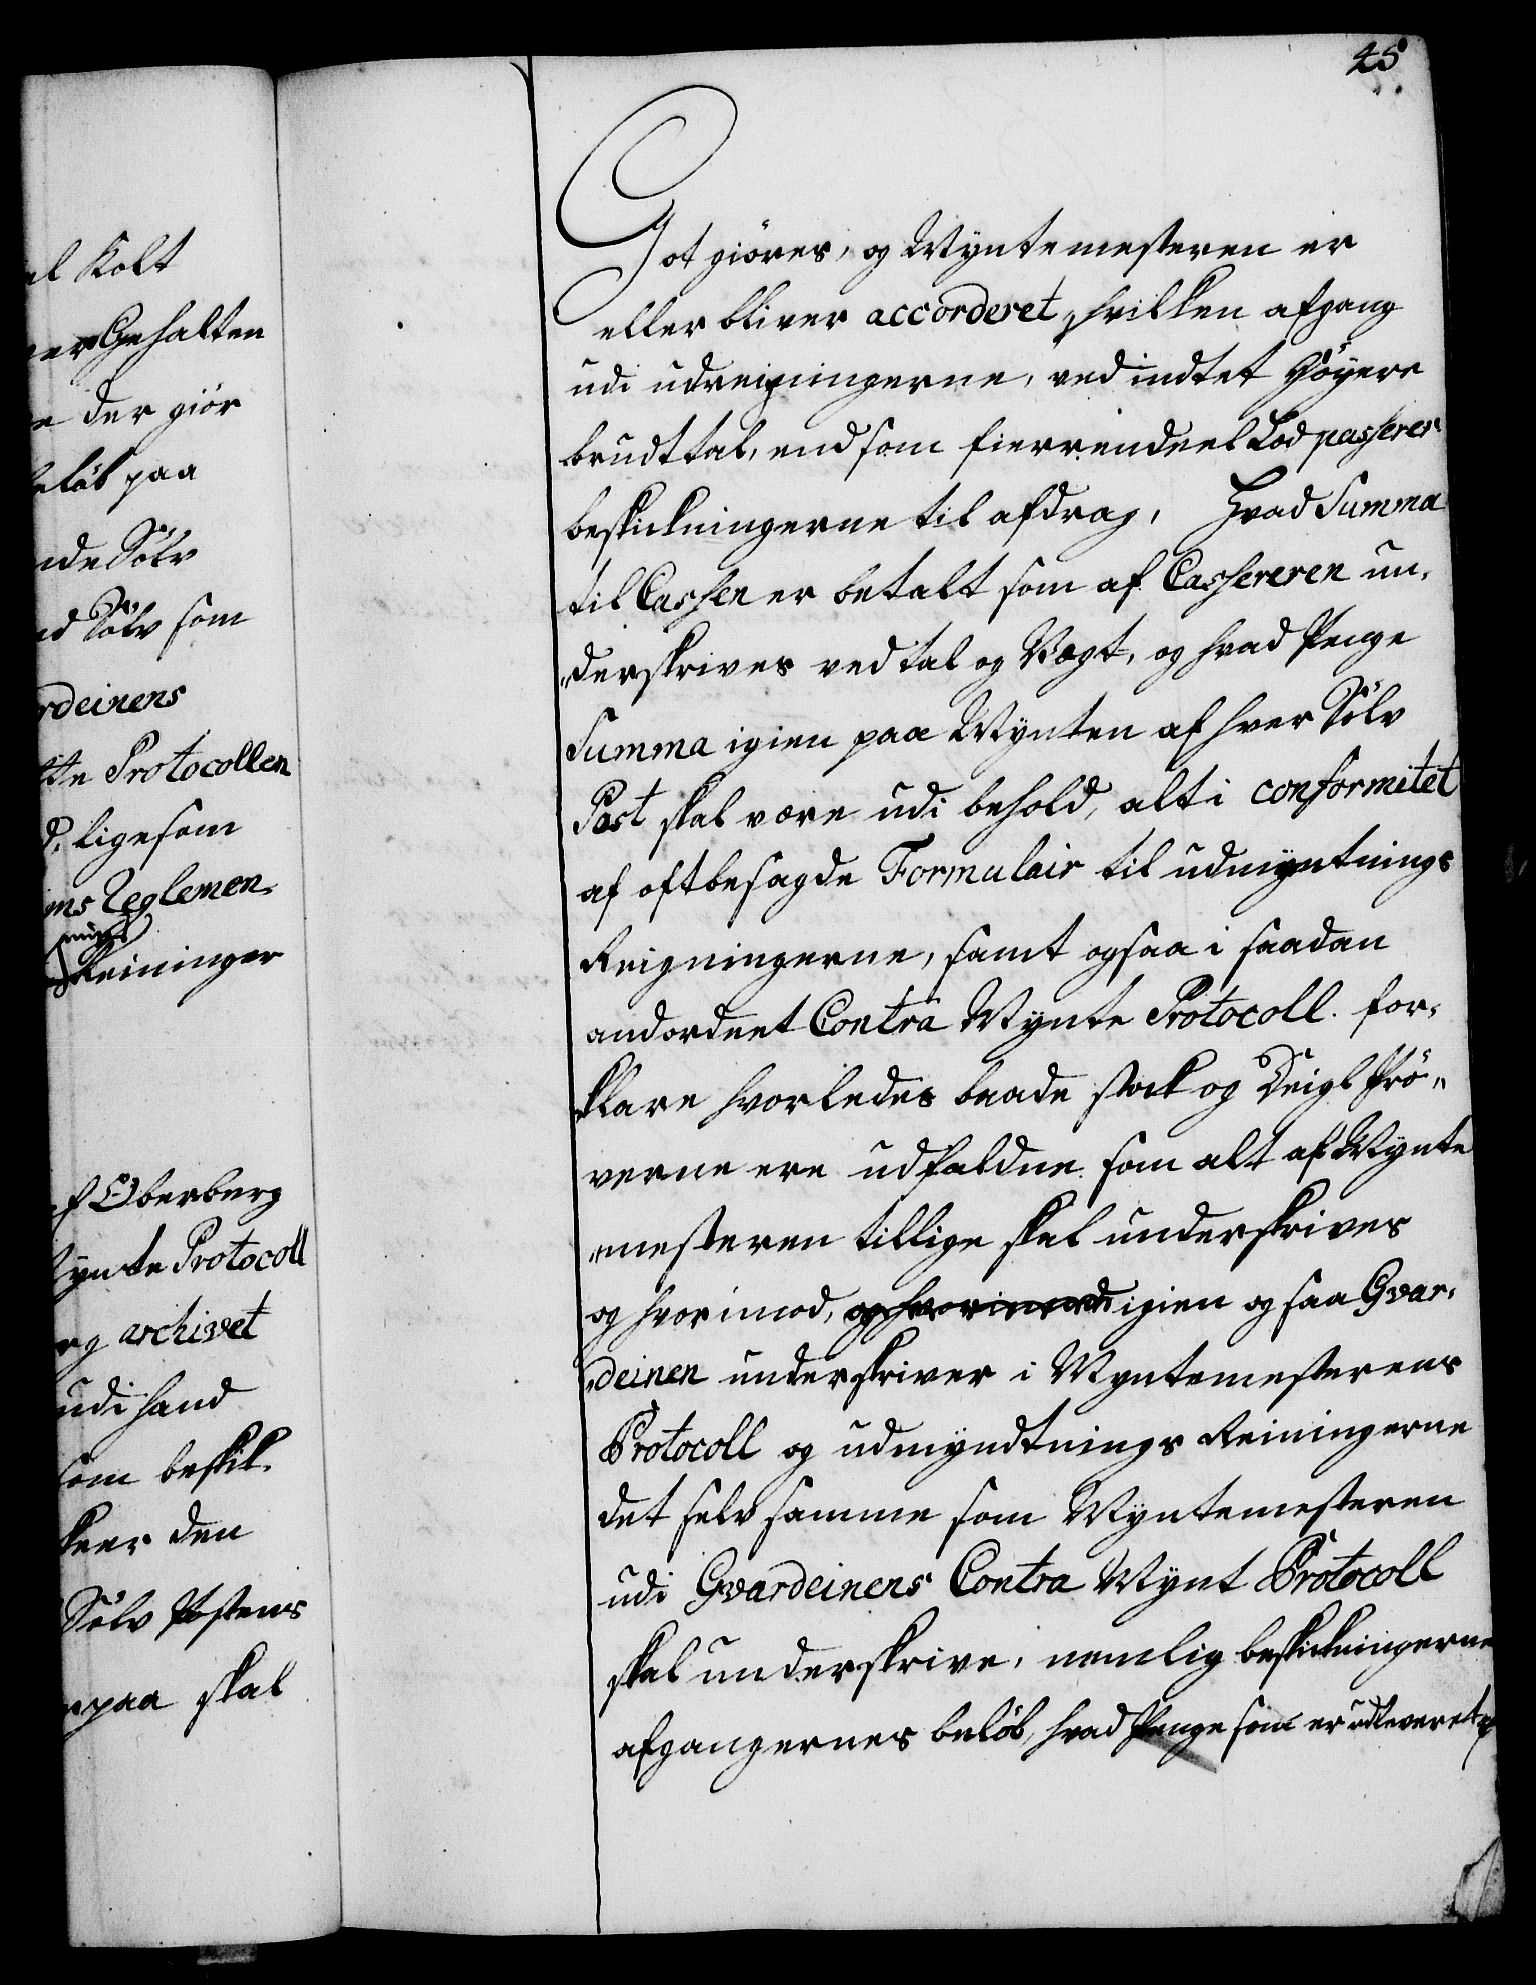 45
el Kolt
Gehalten
der giör
beløb paa
Sölv
Sölv som
rdeinens
Protocollen
ligesom
Reglemen-
Reininger
Oberberg
Mynte Protocoll
archivet
udi haand
som beskik-
keer den
Sölv Posters
paa skal
Got giöres, og Myntemesteren er
eller bliver accorderet, hvilken afgang
udi udreigningerne, ved indtet höyere
brudt tal, end som fierrendeel Lod passerer
beskickningerne til afdrag, hvad Summa
til Cassen er betalt som af Cassereren un-
derskrives ved tal og Vægt, og hvad Penge
Summa igien paa Mynten af hver Sölv
Post skal være udi behold, alt i conformitet
af oftbesagde Formulair til udmyntnings
Reigningerne, samt ogsaa i saadan
andordnet Contra Mynte Protocoll. for-
klare hvorledes baade stock og Deigl Prö-
verne ere udfaldne som alt af Mynte
mesteren tillige skal underskrives
og hvorimod, og hvorimod igien og saa Gvar-
deinen underskriver i Myntemesterens
Protocoll og udmyndtnings Reiningerne
det selv samme som Myntemesteren
udi Gvardeinens Contra Mynt Protocoll
skal underskrive, nemlig beskickningerne
afgangernes belöb, hvad Penge som er udleveret